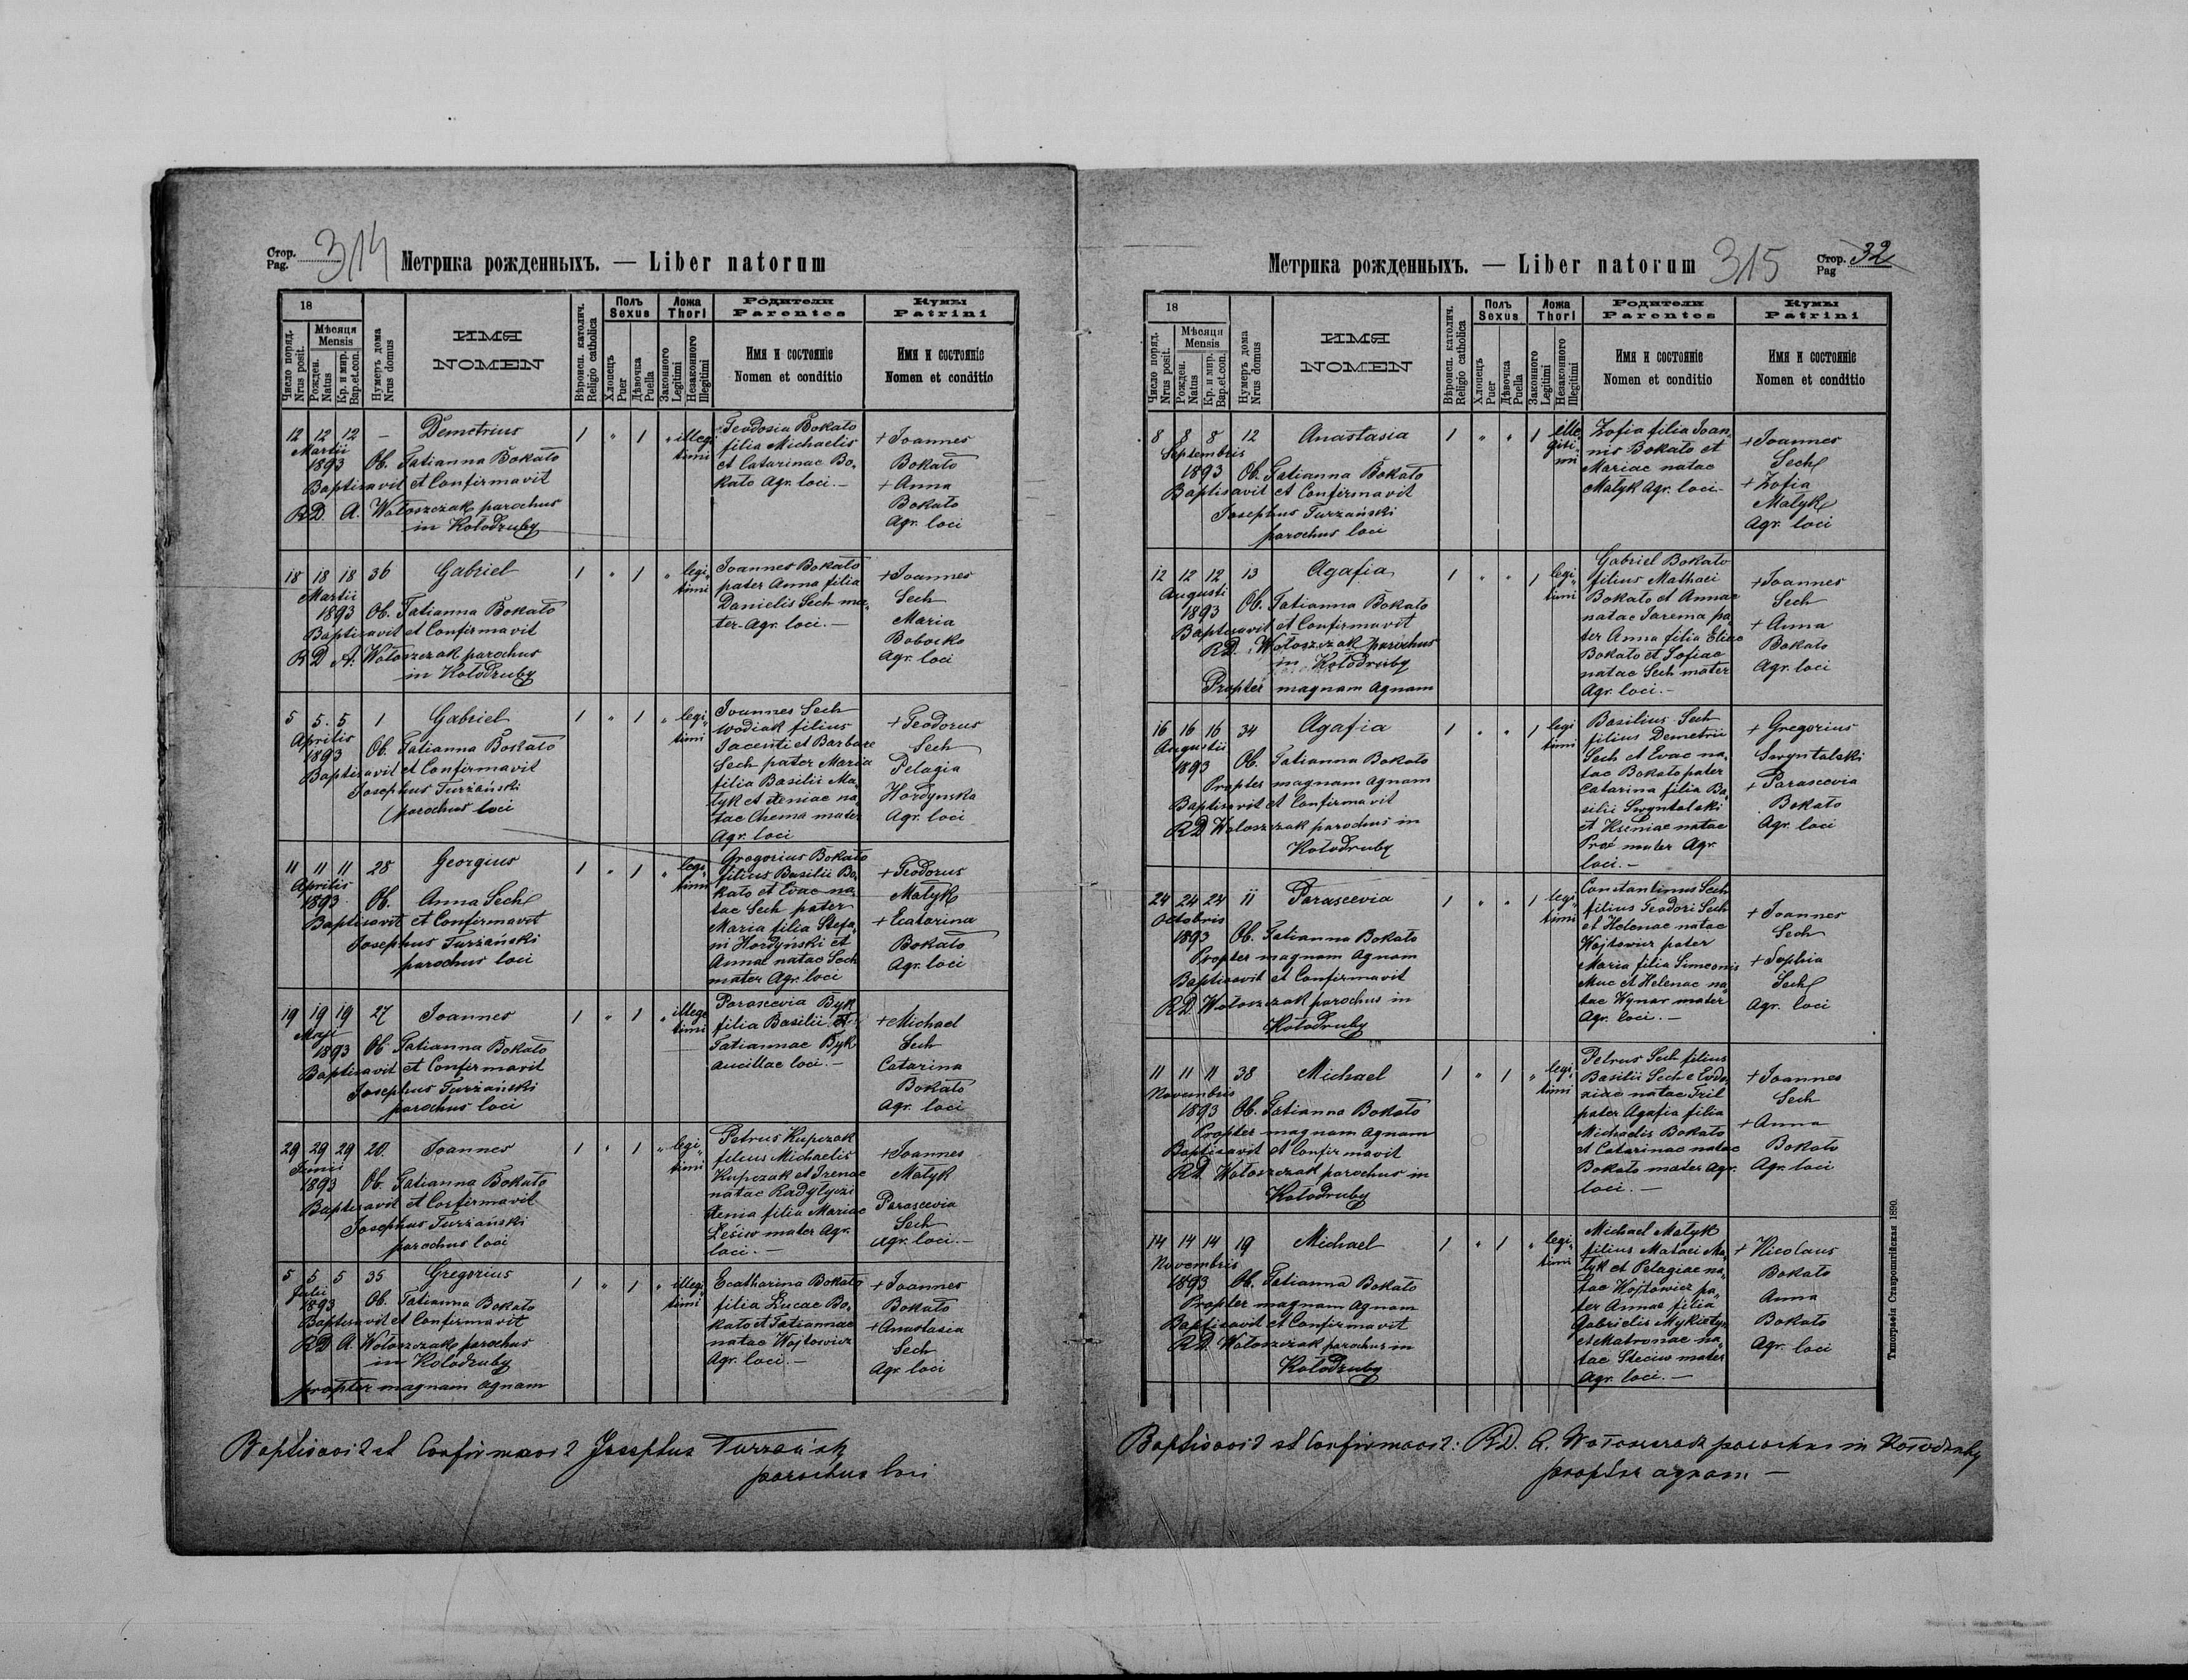 Стор. Pag. 314 Метрика рожденныхъ. — Liber natorum
18
Число поряд. Nrus posit.
Мѣсяця Mensis
Рожден. Natus
Кр. и мир. Bap.et.con.
Нумеръ дома Nrus domus
ИМЯ
NOMEN
Вѣроисп. католич. Religio catholica
Полъ Sexus
Хлопецъ Puer
Дѣвочка Puella
Ложа Thori
Законного Legitimi
Незаконного Illegitimi
Родители Parentes
Имя и состояніе
Nomen et conditio
Кумы Patrini
Имя и состояніе
Nomen et conditio
12 12 12 — Demetrius 1 " 1 " illegi
Martii timi
1893 Ob. Tatianna Bokało
Baptisavit et Confirmavit
RD. A. Wołoszczak parochus
in Kołodruby
Teodosia Bokało
filia Michaelis
et Catarinae Bo,
kało Agr. loci. —
+ Joannes
Bokało
+ Anna
Bokało
Agr. loci
18 18 18 36 Gabriel 1 " 1 " legi
Martii timi
1893 Ob. Tatianna Bokało
Baptisavit et Confirmavit
RD A. Wołoszczak parochus
in Kołodruby
Joannes Bokało
pater Anna filia
Danielis Sech ma,
ter Agr. loci. —
+ Joannes
Sech
Maria
Bobocko
Agr. loci
5 5. 5 1 Gabriel 1 " 1 " legi
Aprilis timi
1893 Ob. Tatianna Bokało
Baptisavit et Confirmavit
Josephus Turzański
parochus loci
Joannes Sech
wodiak filius
Jacenti et Barbare
Sech pater Maria
filia Basilii Ma,
tyk et Xeniae na,
tae Chema mater
Agr. loci
+ Teodorus
Sech
Pelagia
Hordynska
Agr. loci
11 11 11 28 Georgius 1 " 1 " legi
Aprilis timi
1893 Ob. Anna Sech
Baptisavit et Confirmavit
Josephus Turzański
parochus loci
Gregorius Bokało
filius Basilii Bo,
kało et Evae na,
tae Sech pater
Maria filia Stefa,
ni Hordyński et
Annae natae Sech
mater Agr. loci
+ Teodorus
Matyk
+ Ecatarina
Bokało
Agr. loci
19 19 19 27 Joannes 1 " 1 " illege
Maji timi
1893 Ob Tatianna Bokało
Baptisavit et Confirmavit
Josephus Turzański
parochus loci
Parascevia Byk
filia Basilii et
Tatiannae Byk
ancillae loci. —
+ Michael
Sech
Catarina
Bokało
Agr. loci
29 29 29 20. Joannes 1 " 1 " legi
Junii timi
1893 Ob. Tatianna Bokało
Baptisavit et Confirmavit
Josephus Turzański
parochus loci
Petrus Kupczak
filius Michaelis
Kupczak et Irenae
natae Radylyczi
Xenia filia Mariae
Łesiw mater Agr.
loci. —
+ Joannes
Matyk
Parascevia
Sech
Agr. loci. —
5 5 5 35 Gregorius 1 " 1 " illegi
Julii timi
1893 Ob. Tatianna Bokało
Baptisavit et Confirmavit
RD A. Wołoszczak parochus
in Kołodruby
propter magnam agnam
Ecatharina Bokało
filia Lucae Bo,
kało et Tatiannae
natae Wojtowicz
Agr. loci. —
+ Joannes
Bokało
+ Anastasia
Sech
Agr. loci
Baptisavit et Confirmavit Josephus Turzański
parochus loci
Метрика рожденныхъ. — Liber natorum 315 Стор. Pag 32
18
Число поряд. Nrus posit.
Мѣсяця Mensis
Рожден. Natus
Кр. и мир. Bap.et.con.
Нумеръ дома Nrus domus
ИМЯ
NOMEN
Вѣроисп. католич. Religio catholica
Полъ Sexus
Хлопецъ Puer
Дѣвочка Puella
Ложа Thori
Законного Legitimi
Незаконного Illegitimi
Родители Parentes
Имя и состояніе
Nomen et conditio
Кумы Patrini
Имя и состояніе
Nomen et conditio
8 8 8 12 Anastasia 1 " " 1 ille
Septembris giti
1893 Ob. Tatianna Bokało mi
Baptisavit et Confirmavit
Josephus Turzański
parochus loci
Zofia filia Joan,
nis Bokało et
Mariae natae
Matyk Agr. loci —
+ Joannes
Sech
+ Zofia
Matyk
Agr. loci
12 12 12 13 Agafia 1 " " 1 legi
Augusti timi
1893 Ob. Tatianna Bokało
Baptisavit et Confirmavit
RD. Wołoszczak parochus
in Kołodruby
Propter magnam agnam
Gabriel Bokało
filius Mathaei
Bokało et Annae
natae Jarema pa
ter Anna filia Eliae
Bokało et Sofiae
natae Sech mater
Agr. loci. —
+ Joannes
Sech
+ Anna
Bokało
Agr. loci
16 16 16 34 Agafia 1 " " 1 legi
Augustii timi
1893 Ob. Tatianna Bokało
Propter magnam agnam
Baptisavit et Confirmavit
RD Wołoszczak parochus in
Kołodruby
Basilius Sech
filius Demetrii
Sech et Evae na,
tae Bokało pater
Catarina filia Ba,
silii Swyntalski
et Kseniae natae
mater Agr.
loci. —
+ Gregorius
Swyntalski
+ Parascevia
Bokało
Agr. loci
24 24 24 11 Parascevia 1 " " 1 legi
Octobris timi
1893 Ob. Tatianna Bokało
Propter magnam Agnam
Baptisavit et Confirmavit
RD Wołoszczak parochus in
Kołodruby
Constantinus Sech
filius Teodori Sech
et Helenae natae
Wojtowicz pater
Maria filia Simeonis
Muc et Helenae na,
tae Wynar mater
Agr. loci. —
+ Joannes
Sech
+ Sophia
Sech
Agr. loci
11 11 11 38 Michael 1 " 1 " legi
Novembris timi
1893 Ob. Tatianna Bokało
Propter magnam agnam
Baptisavit et Confirmavit
RD. Wołoszczak parochus in
Kołodruby
Petrus Sech filius
Basilii Sech e Evdo,
xiae natae Fril
pater Agafia filia
Michaelis Bokało
et Catarinae natae
Bokało mater Agr.
loci. —
+ Joannes
Sech
+ Anna
Bokało
Agr. loci
14 14 14 19 Michael 1 " 1 " legi
Novembris timi
1893 Ob. Tatianna Bokało
Propter magnam agnam
Baptisavit et Confirmavit
RD. Wołoszczak parochus in
Kołodruby
Michael Matyk
filius Mataei Ma,
tyk et Pelagiae na,
tae Wojtowicz pa,
ter Annae filia
Gabrielis Mykietyn
et Matronae na,
tae Steciw mater
Agr. loci. —
+ Nicolaus
Bokało
Anna
Bokało
Agr. loci
Baptisavit et Confirmavit: RD. A. Wołoszczak parochus in Kołodruby
propter agnam —
Типографія Ставропигійская 1890.